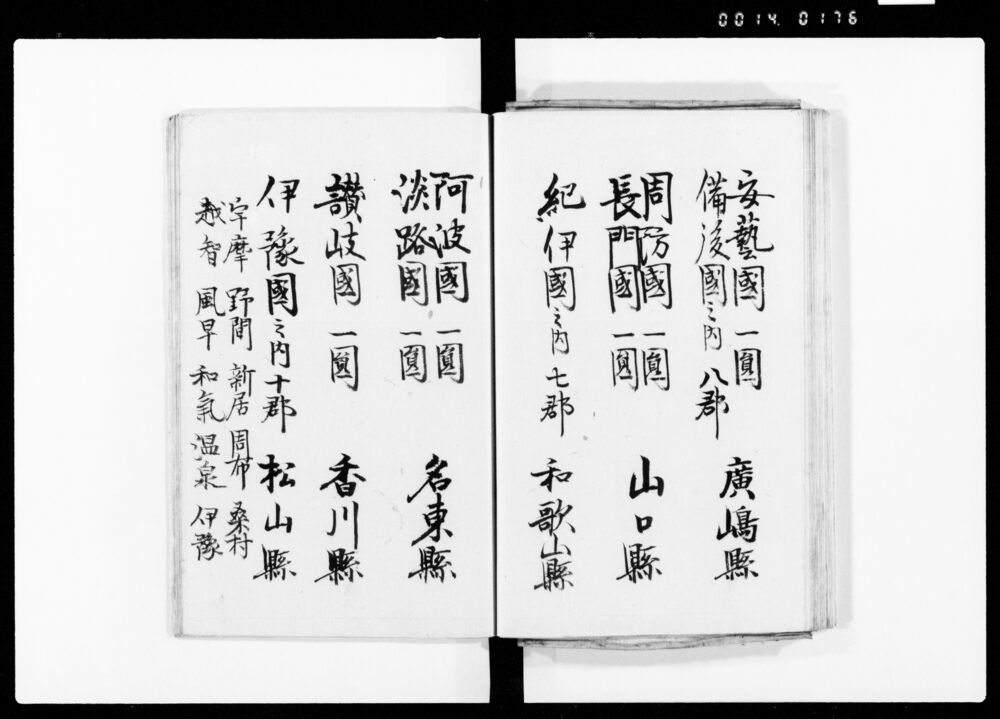 0014.0176
安藝國一圓
備後國之内八郡
廣嶋縣
周防國一圓
長門國一圓
山口縣
紀伊國之内七郡
和歌山縣
阿波國一圓
淡路國一圓
名東縣
讃岐國一圓
香川縣
伊豫國之内十郡
松山縣
宇摩 野間 新居 周布 桑村
越智 風早 和氣 温泉 伊豫